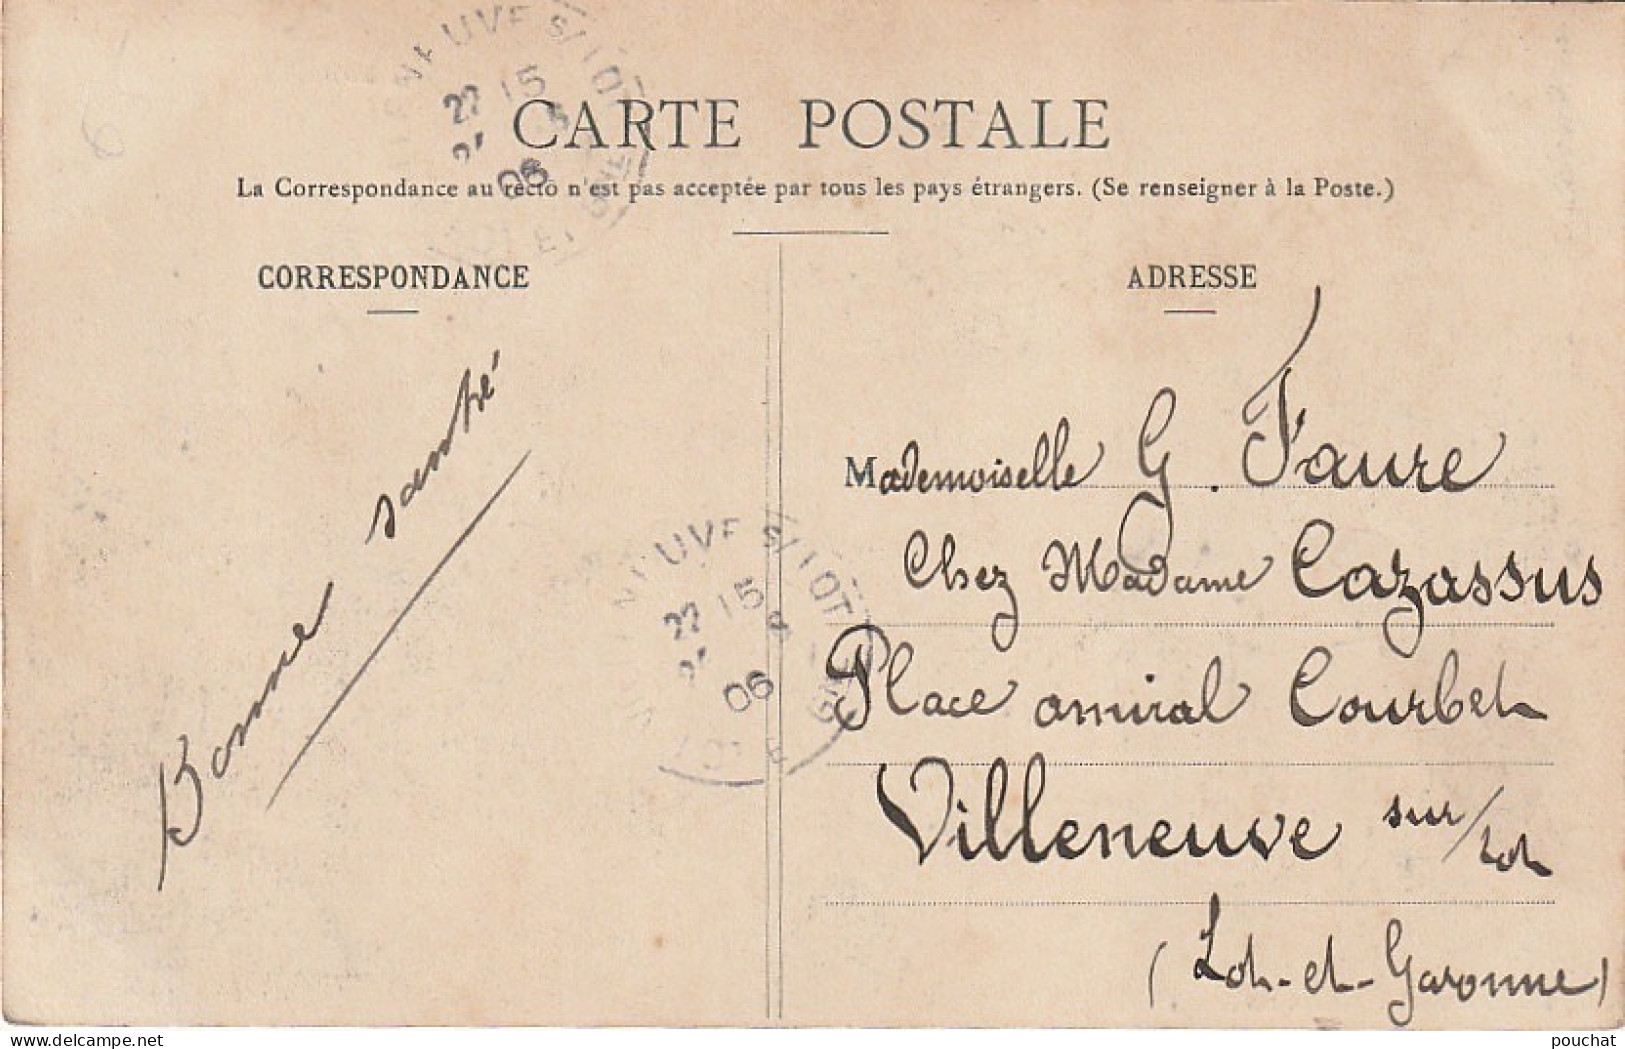 CARTE POSTALE
La Correspondance au recto n'est pas acceptée par tous les pays étrangers. (Se renseigner à la Poste.)
CORRESPONDANCE
Bonne santé
ADRESSE
Mademoiselle G. Faure
Chez Madame Cazassus
Place amiral Courbet
Villeneuve sur/Lot
(Lot-et-Garonne)
NEUVE S/ LOT
22 15
06
ET
NEUVE S/ LOT
22 15
06
ET
delcampe.net
pouchat